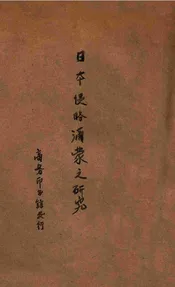 日本侵略滿蒙之研究
商務印書館發行